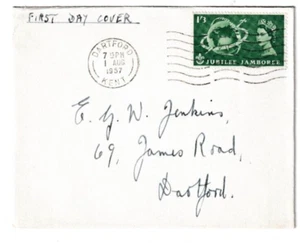 FIRST DAY COVER
1/3
JUBILEE JAMBOREE
DARTFORD
7 15PM
1 AUG
1957
KENT
E. G. W. Jenkins,
69, James Road,
Dartford.